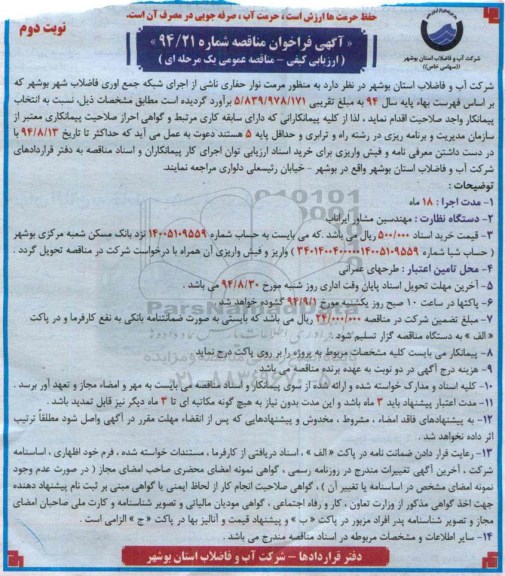 حفظ حرمت ها ارزش است ، حرمت آب ، صرفه جویی در مصرف آن است.
نوبت دوم
« آگهی فراخوان مناقصه شماره ۹۴/۲۱ »
( ارزیابی کیفی – مناقصه عمومی یک مرحله ای )
شرکت آب و فاضلاب استان بوشهر
(سهامی خاص)
شرکت آب و فاضلاب استان بوشهر در نظر دارد به منظور مرمت نوار حفاری ناشی از اجرای شبکه جمع اوری فاضلاب شهر بوشهر که
بر اساس فهرست بهاء پایه سال ۹۴ به مبلغ تقریبی ۵/۸۳۹/۹۷۸/۱۷۱ برآورد گردیده است مطابق مشخصات ذیل، نسبت به انتخاب
پیمانکار واجد صلاحیت اقدام نماید ، لذا از کلیه پیمانکارانی که دارای سابقه کاری مرتبط و گواهی احراز صلاحیت پیمانکاری معتبر از
سازمان مدیریت و برنامه ریزی در رشته راه و ترابری و حداقل پایه ۵ هستند دعوت به عمل می آید که حداکثر تا تاریخ ۹۴/۸/۱۳ با
در دست داشتن معرفی نامه و فیش واریزی برای خرید اسناد ارزیابی توان اجرای کار پیمانکاران و اسناد مناقصه به دفتر قراردادهای
شرکت آب و فاضلاب استان بوشهر واقع در بوشهر – خیابان رئیسعلی دلواری مراجعه نمایند.
توضیحات :
۱– مدت اجرا : ۱۸ ماه
۲– دستگاه نظارت : مهندسین مشاور ایراناب
۳– قیمت خرید اسناد ۵۰۰/۰۰۰ ریال می باشد .که می بایست به حساب شماره ۱۴۰۰۵۱۰۹۵۵۹ نزد بانک مسکن شعبه مرکزی بوشهر
( حساب شبا شماره ۳۴۰۱۴۰۰۴۰۰۰۰۰۱۴۰۰۵۱۰۹۵۵۹ ) واریز و فیش واریزی آن همراه با درخواست شرکت در مناقصه تحویل گردد .
۴– محل تامین اعتبار : طرحهای عمرانی
۵– آخرین مهلت تحویل اسناد پایان وقت اداری روز شنبه مورخ ۹۴/۸/۳۰ می باشد .
۶– پاکتها در ساعت ۱۰ صبح روز یکشنبه مورخ ۹۴/۹/۱ گشوده خواهد شد .
۷– مبلغ تضمین شرکت در مناقصه ۲۴/۰۰۰/۰۰۰ ریال می باشد که بایستی به صورت ضمانتنامه بانکی به نفع کارفرما و در پاکت
« الف » به دستگاه مناقصه گزار تسلیم شود .
۸– پیمانکار می بایست کلیه مشخصات مربوط به پروژه را بر روی پاکت درج نماید
۹– هزینه درج آگهی در دو نوبت به عهده برنده مناقصه می باشد
۱۰– کلیه اسناد و مدارک خواسته شده و ارائه شده از سوی پیمانکار و اسناد مناقصه می بایست به مهر و امضاء مجاز و تعهد آور برسد .
۱۱– مدت اعتبار پیشنهاد باید ۳ ماه باشد و این مدت بدون نیاز به هیچ گونه مکاتبه ای تا ۳ ماه دیگر نیز قابل تمدید باشد .
۱۲– به پیشنهادهای فاقد امضاء ، مشروط ، مخدوش و پیشنهادهایی که پس از انقضاء مهلت مقرر در آگهی واصل شود مطلقاً ترتیب
اثر داده نخواهد شد .
۱۳– رعایت قرار دادن ضمانت نامه در پاکت « الف » ، اسناد دریافتی از کارفرما ، مستندات خواسته شده ، فرم خود اظهاری ، اساسنامه
شرکت ، آخرین آگهی تغییرات مندرج در روزنامه رسمی ، گواهی نمونه امضای محضری صاحب امضای مجاز ( در صورت عدم وجود
نمونه امضای مشخص در اساسنامه یا تغییر آن ) ، گواهی صلاحیت انجام کار از لحاظ ایمنی یا گواهی مبنی بر ثبت نام پیشنهاد دهنده
جهت اخذ گواهی مذکور از وزارت تعاون ، کار و رفاه اجتماعی ، گواهی مودیان مالیاتی و تصویر شناسنامه و کارت ملی صاحبان امضای
مجاز و تصویر شناسنامه پدر افراد مزبور در پاکت « ب » و پیشنهاد قیمت و آنالیز بها در پاکت « ج » الزامی است .
۱۴– سایر اطلاعات و مشخصات مربوطه در اسناد مناقصه مندرج می باشد .
دفتر قراردادها – شرکت آب و فاضلاب استان بوشهر